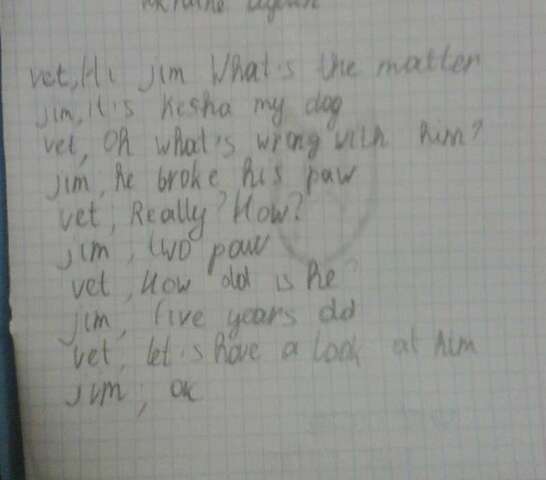 ukraine again
vet, Hi jim What's the matter
jim, it's Kesha my dog
vet, Oh what's wrong with him?
jim, he broke his paw
vet, Really? How?
jim, two paw
vet, How old is he
jim, five years old
vet, let's have a look at him
jim, ok